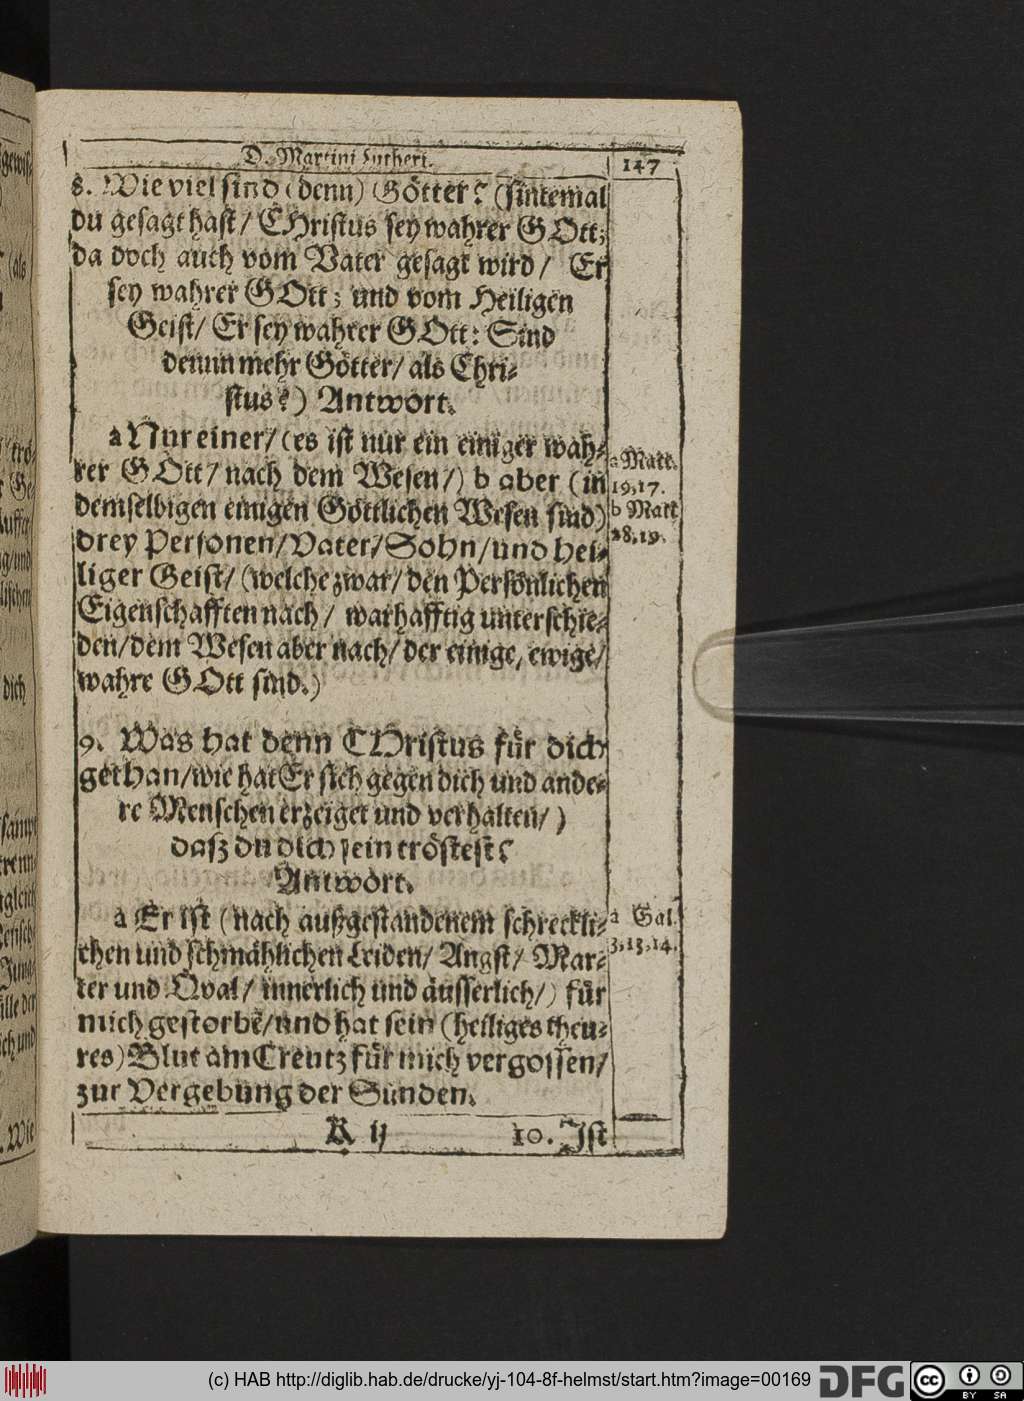 D. Martini Lutheri. 147
8. Wie viel sind (denn) Götter? (sintemal
du gesagt hast / CHristus sey wahrer GOtt;
da doch auch vom Vater gesagt wird / Er
sey wahrer GOtt; und vom Heiligen
Geist / Er sey wahrer GOtt: Sind
denun mehr Götter / als Chri-
stus?) Antwort.
a Nur einer / (es ist nur ein einiger wah-
rer GOtt / nach dem Wesen /) b aber (in
demselbigen einigen Göttlichen Wesen sind)
drey Personen / Vater / Sohn / und hei-
liger Geist / (welche zwar / den Persönlichen
Eigenschafften nach / warhafftig unterschie-
den / dem Wesen aber nach / der einige, ewige /
wahre GOtt sind.)
a Matt.
19,17.
b Matt
28,19.
9. Was hat denn CHristus für dich
gethan / wie hat Er sich gegen dich und ande-
re Menschen erzeiget und verhalten / )
dasz du dich sein tröstest?
Antwort.
a Er ist (nach außgestandenem schreckli-
chen und schmählichen Leiden / Angst / Mar-
ter und Qval / innerlich und äusserlich /) für
mich gestorbē / und hat sein (heiliges theu-
res) Blut am Creutz für mich vergossen /
zur Vergebung der Sünden.
a Gal.
3,13,14.
K ij 10. Ist
(c) HAB http://diglib.hab.de/drucke/yj-104-8f-helmst/start.htm?image=00169 DFG cc BY SA